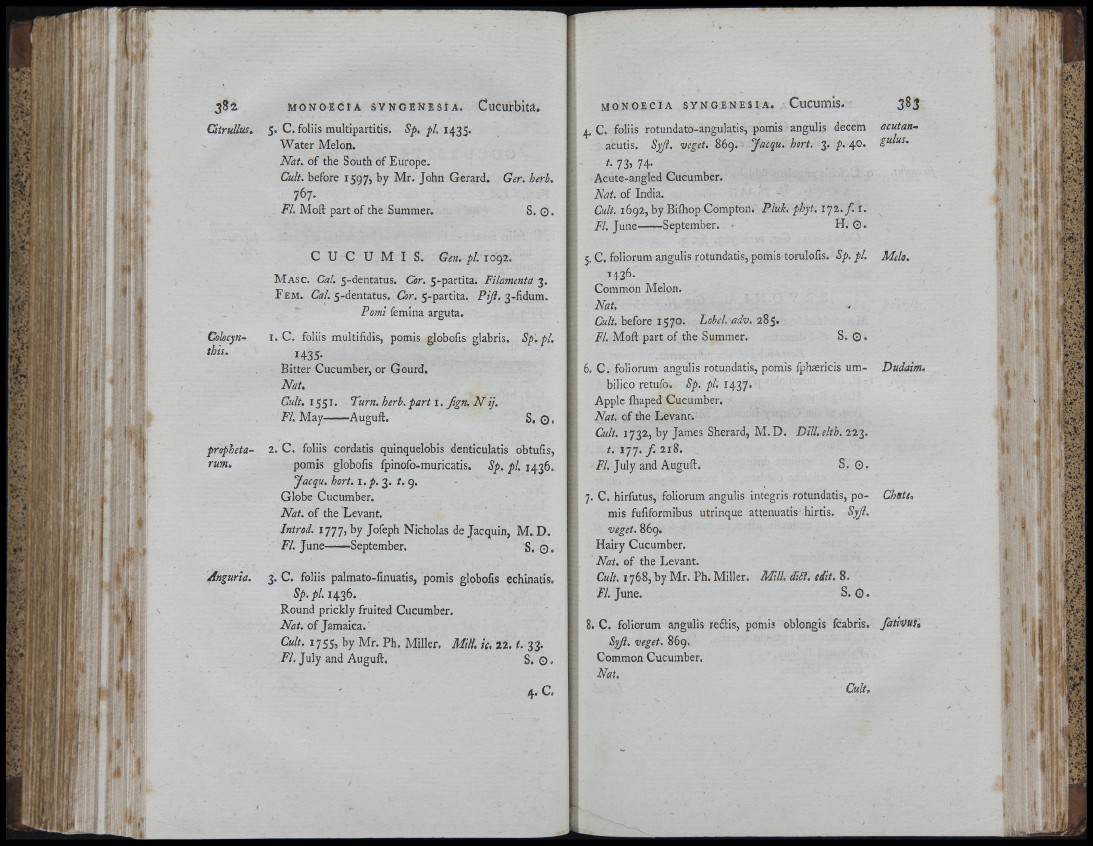 382 MONOECIA SYNGENESIA. Cucurbita.
Citrullus. 5. C. foliis multipartitis. Sp. pl. 1435.
Water Melon.
Nat. of the South of Europe.
Cult. before 1597, by Mr. John Gerard. Ger. herb.
767.
Fl. Moſt part of the Summer. S. ☉.
CUCUMIS. Gen. pl. 1092.
MASC. Cal. 5-dentatus. Cor. 5-partita. Filamenta 3.
FEM. Cal. 5-dentatus. Cor. 5-partita. Piſt. 3-fidum.
Pomi ſemina arguta.
Colocyn- 1. C. foliis multifidis, pomis globoſis glabris. Sp. pl.
this. 1435.
Bitter Cucumber, or Gourd.
Nat.
Cult. 1551. Turn. herb. part 1. ſign. N ij.
Fl. May——Auguſt. S. ☉.
propheta- 2. C. foliis cordatis quinquelobis denticulatis obtuſis,
rum. pomis globoſis ſpinoſo-muricatis. Sp. pl. 1436.
Jacqu. hort. 1. p. 3. t. 9.
Globe Cucumber.
Nat. of the Levant.
Introd. 1777, by Joſeph Nicholas de Jacquin, M. D.
Fl. June——September. S. ☉.
Anguria. 3. C. foliis palmato-ſinuatis, pomis globoſis echinatis.
Sp. pl. 1436.
Round prickly fruited Cucumber.
Nat. of Jamaica.
Cult. 1755, by Mr. Ph. Miller. Mill. ic. 22. t. 33.
Fl. July and Auguſt. S. ☉.
4. C.
MONOECIA SYNGENESIA. Cucumis. 383
4. C. foliis rotundato-angulatis, pomis angulis decem acutan-
acutis. Syſt. veget. 869. Jacqu. hort. 3. p. 40. gulus.
t. 73, 74.
Acute-angled Cucumber.
Nat. of India.
Cult. 1692, by Biſhop Compton. Pluk. phyt. 172. f. 1.
Fl. June——September. H. ☉.
5. C. foliorum angulis rotundatis, pomis toruloſis. Sp. pl. Melo.
1436.
Common Melon.
Nat.
Cult. before 1570. Lobel. adv. 285.
Fl. Moſt part of the Summer. S. ☉.
6. C. foliorum angulis rotundatis, pomis ſphæricis um- Dudaim.
bilico retuſo. Sp. pl. 1437.
Apple ſhaped Cucumber.
Nat. of the Levant.
Cult. 1732, by James Sherard, M. D. Dill. elth. 223.
t. 177. f. 218.
Fl. July and Auguſt. S. ☉.
7. C. hirſutus, foliorum angulis integris rotundatis, po- Chate.
mis fuſiformibus utrinque attenuatis hirtis. Syſt.
veget. 869.
Hairy Cucumber.
Nat. of the Levant.
Cult. 1768, by Mr. Ph. Miller. Mill. dict. edit. 8.
Fl. June. S. ☉.
8. C. foliorum angulis rectis, pomis oblongis ſcabris. ſativus.
Syſt. veget. 869.
Common Cucumber.
Nat.
Cult.